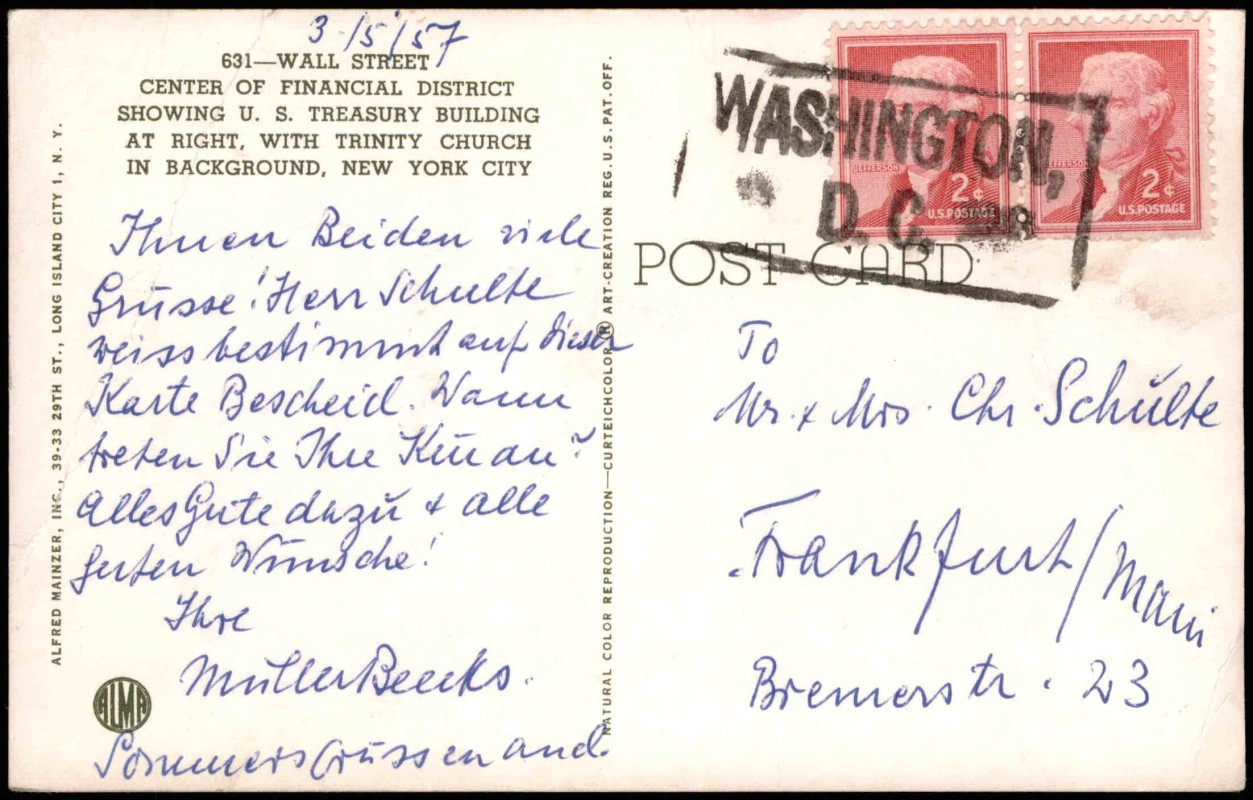 3/5/57
631—WALL STREET
CENTER OF FINANCIAL DISTRICT
SHOWING U. S. TREASURY BUILDING
AT RIGHT, WITH TRINITY CHURCH
IN BACKGROUND, NEW YORK CITY
Ihnen Beiden viele
Grüsse! Herr Schulte
weiss bestimmt auf dieser
Karte Bescheid. Wann
treten Sie Ihre Kur an?
Alles Gute dazu + alle
guten Wünsche!
Ihre
Müller Beecks.
Sommers grüssen
ALMA
ALFRED MAINZER, INC., 39-33 29TH ST., LONG ISLAND CITY 1, N. Y.
NATURAL COLOR REPRODUCTION—CURTEICHCOLOR ® ART-CREATION REG. U.S. PAT. OFF.
POST CARD
WASHINGTON,
D. C.
JEFFERSON
2¢
U.S. POSTAGE
JEFFERSON
2¢
U.S. POSTAGE
To
Mr. + Mrs. Chr. Schulte
Frankfurt/Main
Bremerstr. 23